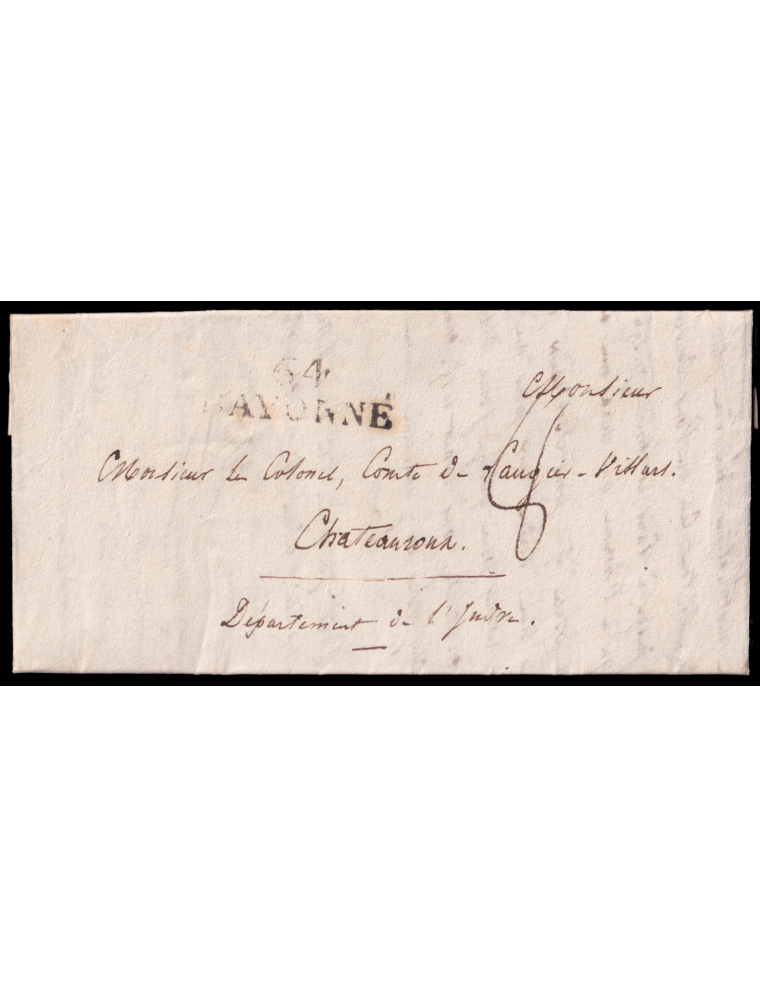 64
BAYONNE
Monsieur
Monsieur le Colonel, Comte de Laugier-Villars.
Chateauroux.
Département de l'Indre.